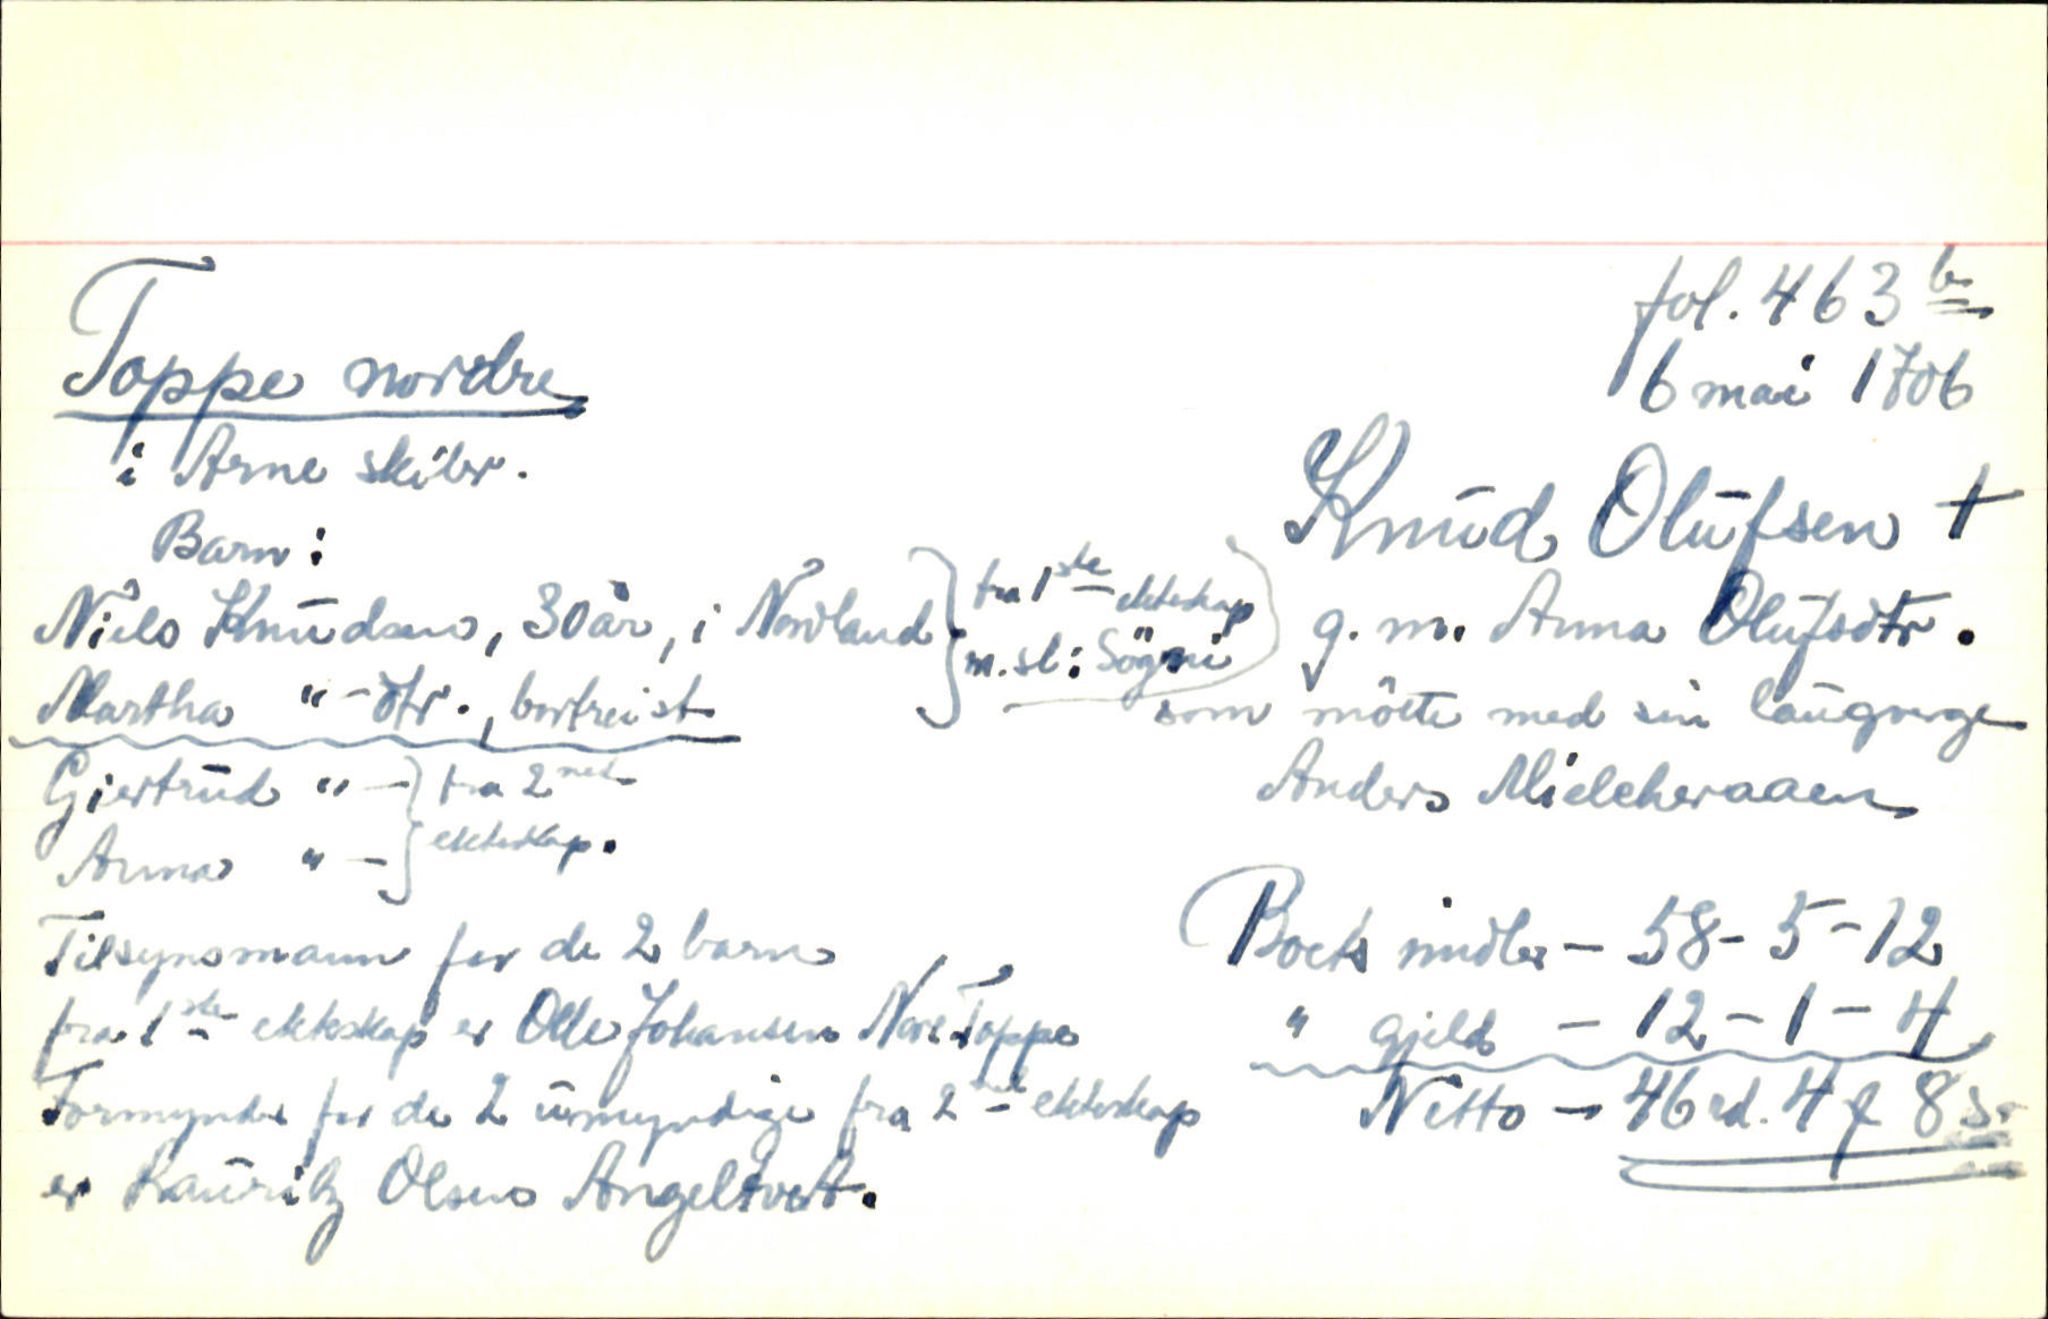 Toppe nordre
i Arne skibr.
fol. 463 b
6 mai 1706
Knud Olufsen +
g. m. Anna Olufsdtr.
som mötte med sin laugverge
Anders Mielcheraaen
Barn:
Niels Knudsen, 30 år, i Nordland
Martha " - dtr., bortreist
fra 1ste ekteskap
m. sl: Sögni
Giertrud " -
Anna " -
fra 2net
ekteskap.
Tilsynsmann for de 2 barn
fra 1ste ekteskap er Olle Johansen Nore Toppe
Formynder for de 2 umyndige fra 2net ekteskap
er Lauritz Olsen Angeltvedt.
Boets midler - 58 - 5 - 12
" gjeld - 12 - 1 - 4
Netto - 46 rd. 4 ƒ 8 s.